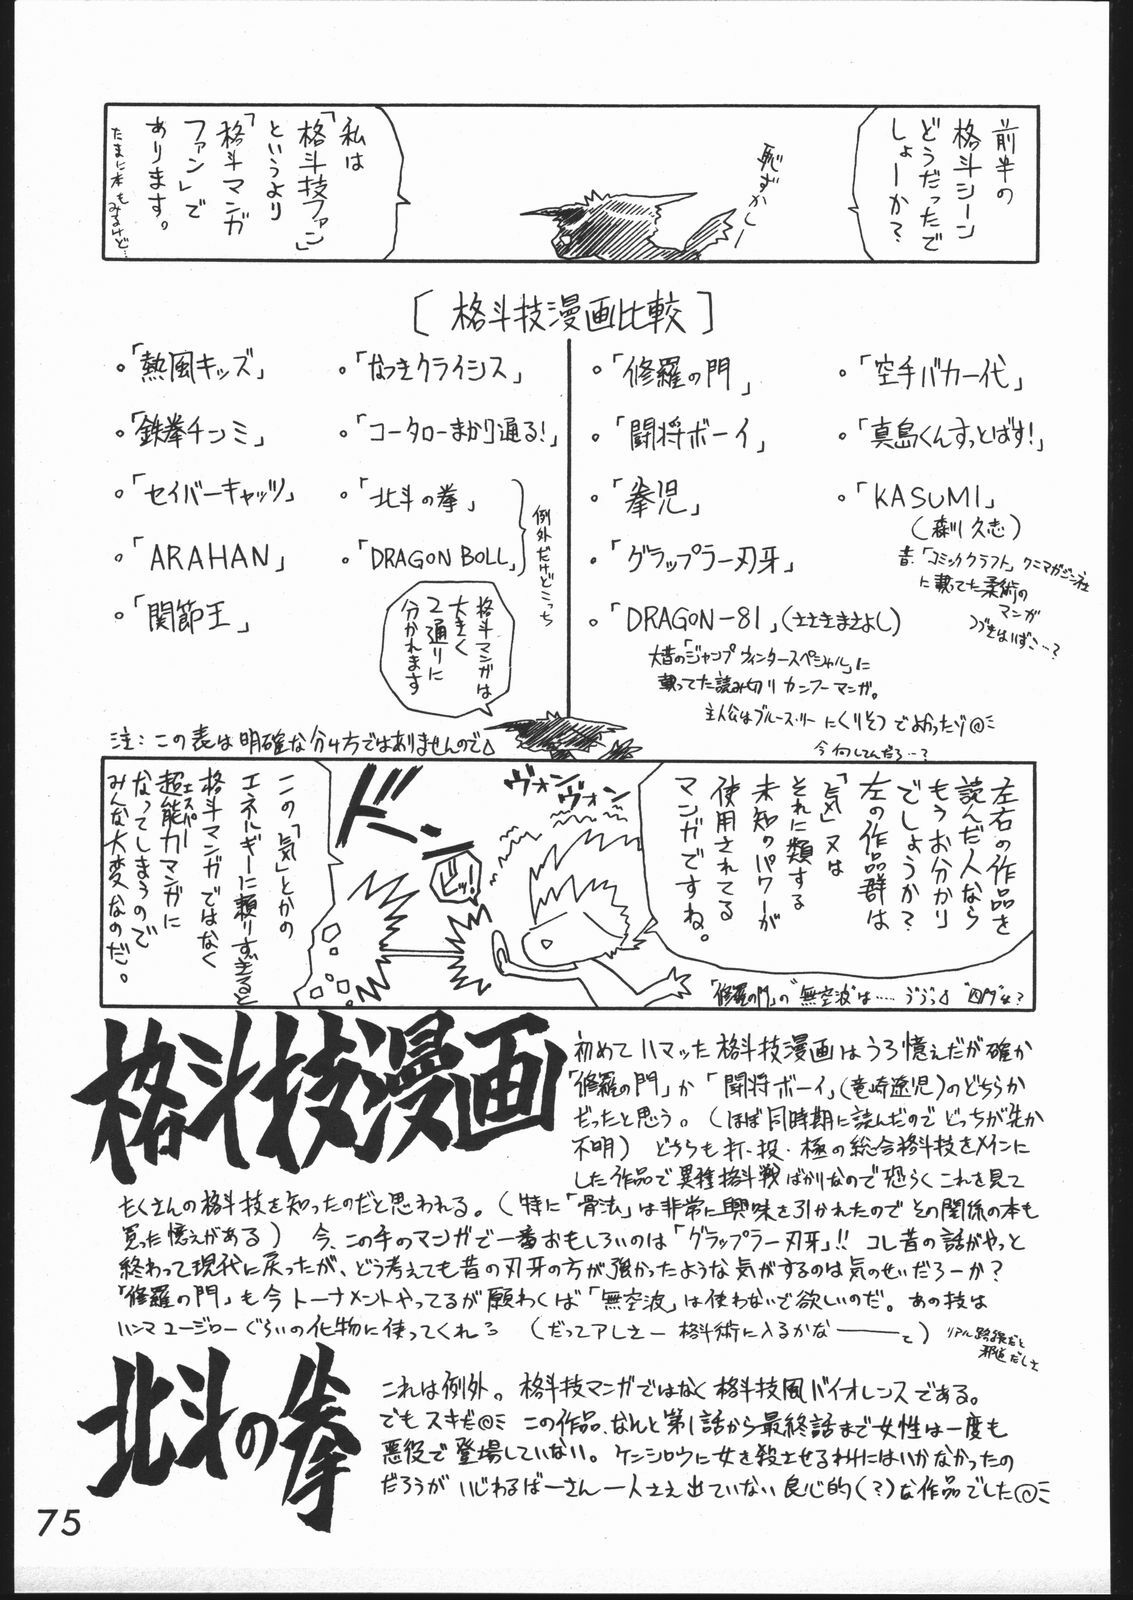 前半の
格斗シーン
どうだったで
しょーか?
恥ずかしー
私は
「格斗技ファン」
というより
「格斗マンガ
ファン」で
あります。
たまに本もみるけど…
[格斗技漫画比較]
・「熱風キッズ」
・「鉄拳チンミ」
・「セイバーキャッツ」
・「ARAHAN」
・「関節王」
・「なつきクライシス」
・「コータローまかり通る!」
・「北斗の拳」
・「DRAGON BOLL」
例外だけどこっち
格斗マンガは
大きく
2通りに
分かれます
・「修羅の門」
・「闘将ボーイ」
・「拳児」
・「グラップラー刃牙」
・「DRAGON-81」(ささきまさよし)
大昔の「ジャンプウィンタースペシャル」に
載ってた読み切りカンフーマンガ。
主人公はブルース・リーにくりそつでよかったゾ
今何してんだろ…?
・「空手バカ一代」
・「真島くんすっとばす!」
・「KASUMI」
昔、「コミッククラフト」
に載てた柔術の
マンガ
つづきはいずこ…?
注:この表は明確な分け方ではありませんので
左右の作品を
読んだ人なら
もうお分かり
でしょうか?
左の作品群は
「気」又は
それに類する
未知のパワーが
使用されてる
マンガですね。
「修羅の門」の“無空波”は……
ヴォン
ヴォン
ビッ!
ドン
この「気」とかの
エネルギーに頼りすぎると
格斗マンガではなく
超能力マンガに
エスパー
なってしまうので
みんな大変なのだ。
格斗技漫画
初めてハマッた格斗技漫画はうろ憶えだが確か
「修羅の門」か「闘将ボーイ」(竜崎遼児)のどちらか
だったと思う。(ほぼ同時期に読んだのでどっちが先か
不明) どちらも打・投・極の総合格斗技をメインに
した作品で異種格斗戦ばかりなので恐らくこれを見て
たくさんの格斗技を知ったのだと思われる。(特に「骨法」は非常に興味を引かれたのでその関係の本も
買った憶えがある) 今、この手のマンガで一番おもしろいのは「グラップラー刃牙」!! コレ昔の話がやっと
終わって現代に戻ったが、どう考えても昔の刃牙の方が強かったような気がするのは気のせいだろーか?
「修羅の門」も今トーナメントやってるが願わくば「無空波」は使わないで欲しいのだ。あの技は
ハンマユージローぐらいの化物に使ってくれ (だってアレさー格斗術に入るかな――と)
リアル路線だと
邪道だしさ
北斗の拳
これは例外。格斗技マンガではなく格斗技風バイオレンスである。
でもスキだ この作品、なんと第1話から最終話まで女性は一度も
悪役で登場していない。ケンシロウに女を殺させるわけにはいかなかったの
だろうがいじわるばーさん一人さえ出ていない良心的(?)な作品でした
75